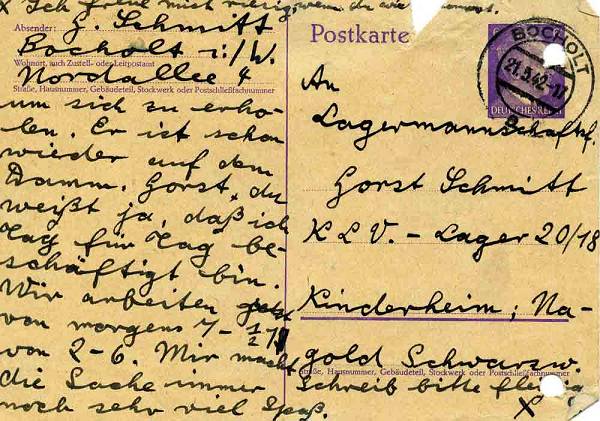 x Ich freue mich riesig, wenn du wie kommst.
Absender: G. Schmitt
Bocholt i./W.
Wohnort, auch Zustell- oder Leitpostamt
Nordallee 4
Straße, Hausnummer, Gebäudeteil, Stockwerk oder Postschließfachnummer
um sich zu erho-
len. Er ist schon
wieder auf dem
Damm. Horst, du
weißt ja, daß ich
Tag für Tag be-
schäftigt bin.
Wir arbeiten jetzt
von morgens 7-
von 2-6. Mir macht
die Sache immer
noch sehr viel Spaß.
Postkarte
BOCHOLT
21.5.42.-17
DEUTSCHES REICH
An
Lagermannschaftsf.
Horst Schmitt
K L V. - Lager 20/18
Kinderheim; Na-
gold Schwarzw.
Straße, Hausnummer, Gebäudeteil, Stockwerk oder Postschließfachnummer
Schreib bitte fleißig
x